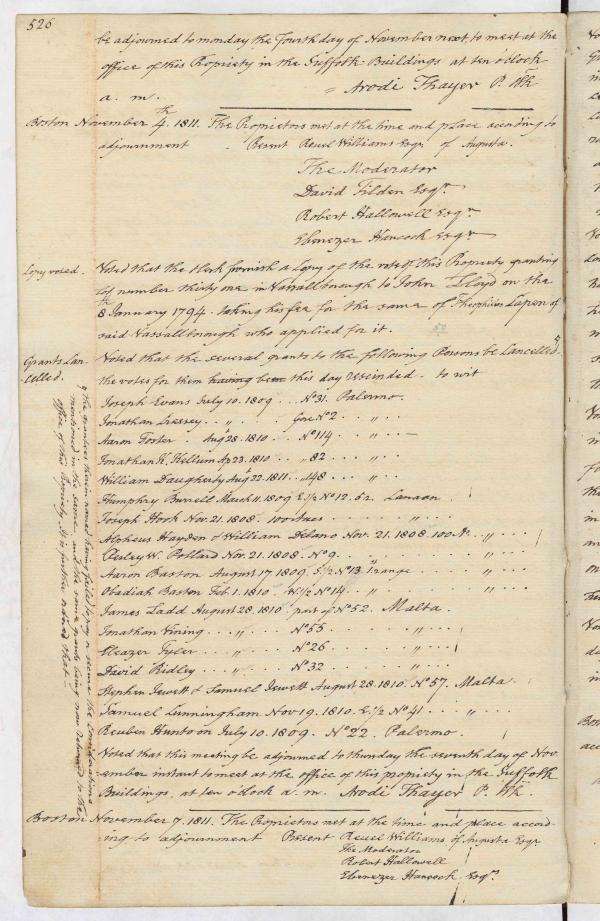 526
be adjourned to monday the Fourth day of November next, to meet at the
office of this Propriety in the Suffolk Buildings at ten oclock
a. m. Arodi Thayer P. Clk
Boston November 4th. 1811. The Proprietors met at the time and place according to
adjournment Present Reuel Williams Esqr. of Augusta.
The Moderator
David Tilden Esqr.
Robert Hallowell Esqr
Ebenezer Hancock Esqr
Copy voted.
Voted that the Clerk furnish a Copy of the vote of this Propriety granting
Lot number thirty one in Vassallborough to John Lloyd on the
8th January 1794. taking his fee for the same of Theophilus of
said Vassallborough who applied for it.
Grants Can-
celled.
Voted that the several grants to the following Persons be Cancelled &
the votes for them having been this day rescinded. to wit
Joseph Evans July 10. 1809 . . . No 31. Palermo.
Jonathan . . " . . Gore No 2 . . " . .
Aaron Foster . Aug 28. 1810 . . . No 114 . . . " . .
Jonathan K. Kellum Ap 23. 1810 . . " 82 . . . " . .
William Daugherty Augt 22. 1811 . . " 148 . . . " . .
Humphry Burrell March 11. 1809 E. 1/2 No 12. 52. Canaan
Joseph Hook Nov. 21. 1808. 100 Acres . . . " . .
Alpheus Hayden & William Delano Nov. 21. 1808. 100 A. . " . .
Wesley W. Pollard Nov. 21. 1808. No 9 . . . " . .
Aaron Baston August 17. 1809. No 13 range . . " . .
Obadiah Baston Feb. 1. 1810. W. 1/2 No 14 . . " . . . " . .
James Ladd August 28. 1810. part of No 52. Malta.
Jonathan Vining . . . " . . . No 55 . . . " . .
Eleazer Tyler . . . " . . . No 26 . . . " . .
David Ridley . . . " . . . No 32 . . . " . .
Stephen Jewett & Samuel Jewett August 28. 1810. No 57. Malta.
Samuel Cunningham Nov 19. 1810. E. 1/2 No 41 . . " . .
Reuben Hunton July 10. 1809. No 22. Palermo.
& the grantees therein named having failed to pay or secure the Considerations
mentioned in the same. and the same grants being now returned to the
office of this Propriety. It is further voted that
Voted that this meeting be adjourned to thursday the seventh day of Nov-
ember instant to meet at the office of this propriety in the Suffolk
Buildings, at ten oclock a. m. Arodi Thayer P. Clk.
Boston November 7. 1811. The Proprietors met at the time and place accord-
ing to adjournment Present Reuel Williams of Augusta Esqr
The Moderator
Robert Hallowell
Ebenezer Hancock Esqrs.